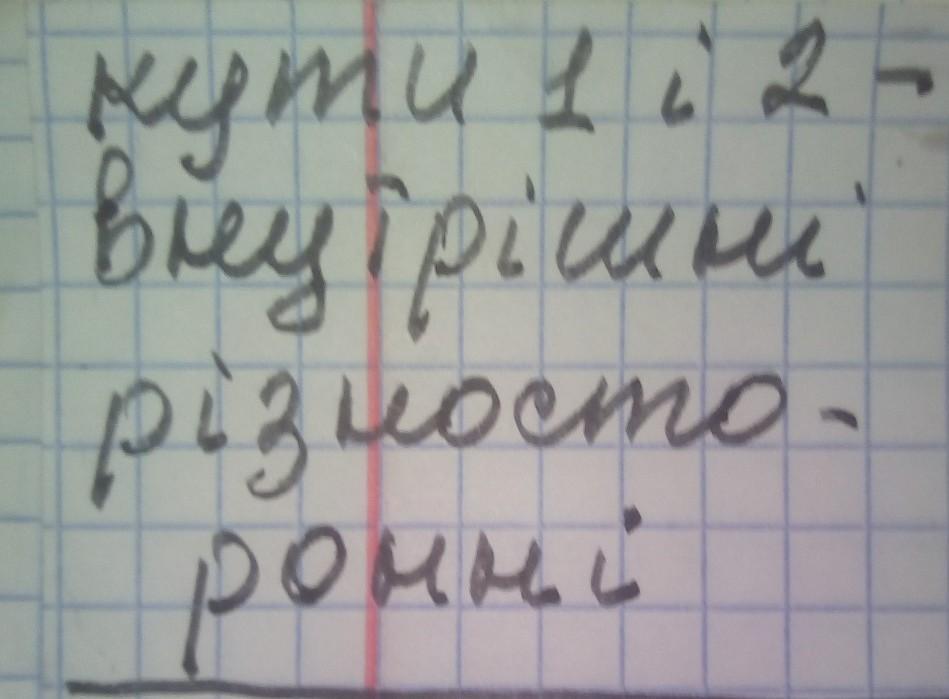 кути 1 і 2 -
внутрішні
різносто-
ронні